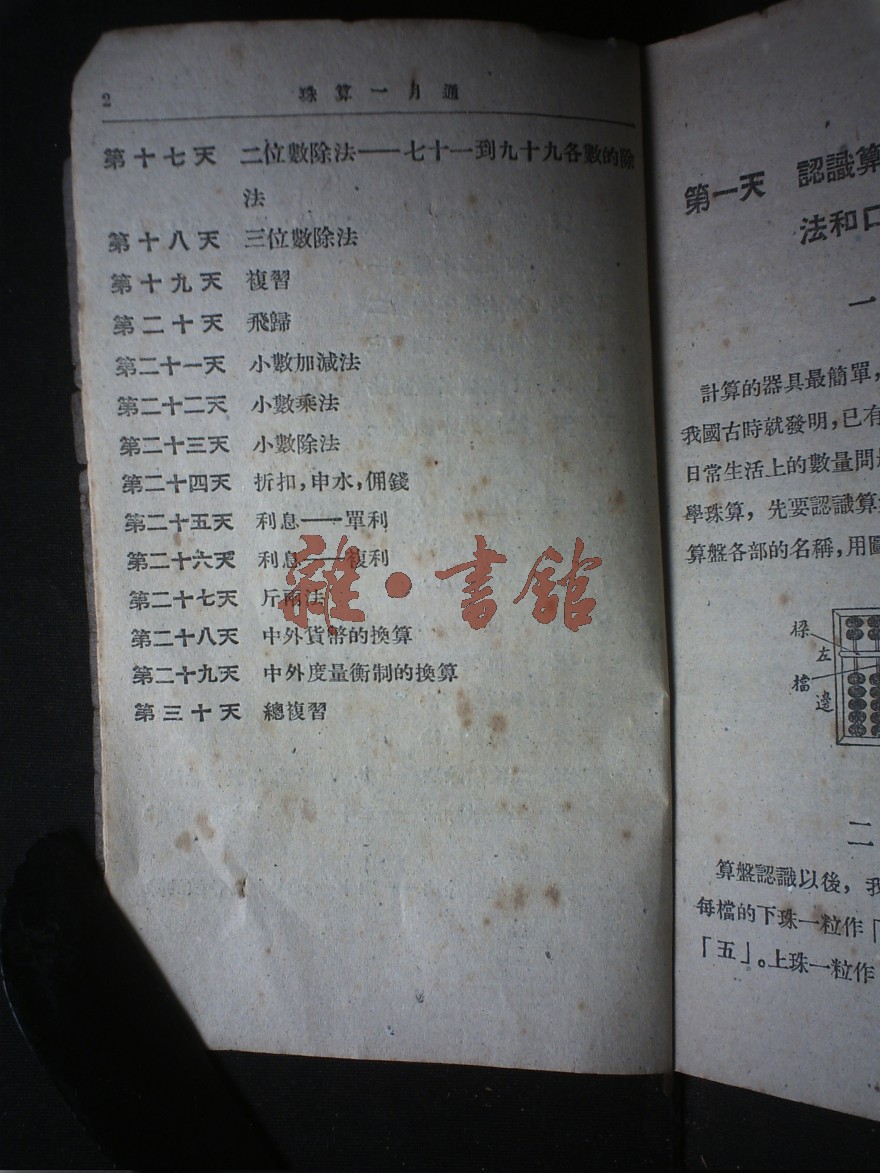 2
珠算一月通
第十七天 二位數除法——七十一到九十九各數的除
法
第十八天 三位數除法
第十九天 複習
第二十天 飛歸
第二十一天 小數加減法
第二十二天 小數乘法
第二十三天 小數除法
第二十四天 折扣,申水,佣錢
第二十五天 利息——單利
第二十六天 利息——複利
第二十七天 斤兩法
第二十八天 中外貨幣的換算
第二十九天 中外度量衡制的換算
第三十天 總複習
雜·書館
第一天 認識算
法和口
一
計算的器具最簡單,
我國古時就發明,已有
日常生活上的數量問
學珠算,先要認識算
算盤各部的名稱,用圖
梁
左
檔
邊
二
算盤認識以後,我
每檔的下珠一粒作「
「五」。上珠一粒作